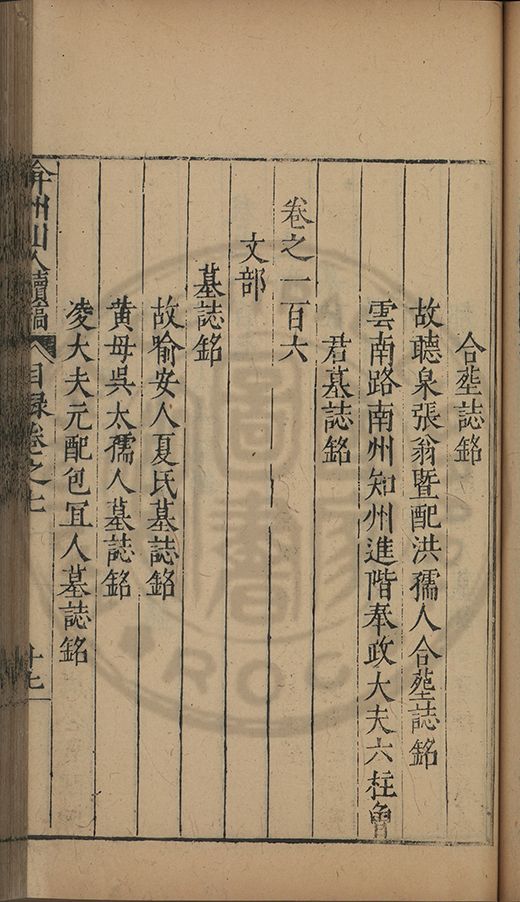 合塟誌銘
故聽泉張翁暨配洪孺人合塟誌銘
雲南路南州知州進階奉政大夫六柱詹
君墓誌銘
卷之一百六
文部
墓誌銘
故喻安人夏氏墓誌銘
黄母吳太孺人墓誌銘
凌大夫元配包宜人墓誌銘
弇州山人續稿 目録卷之七 十七